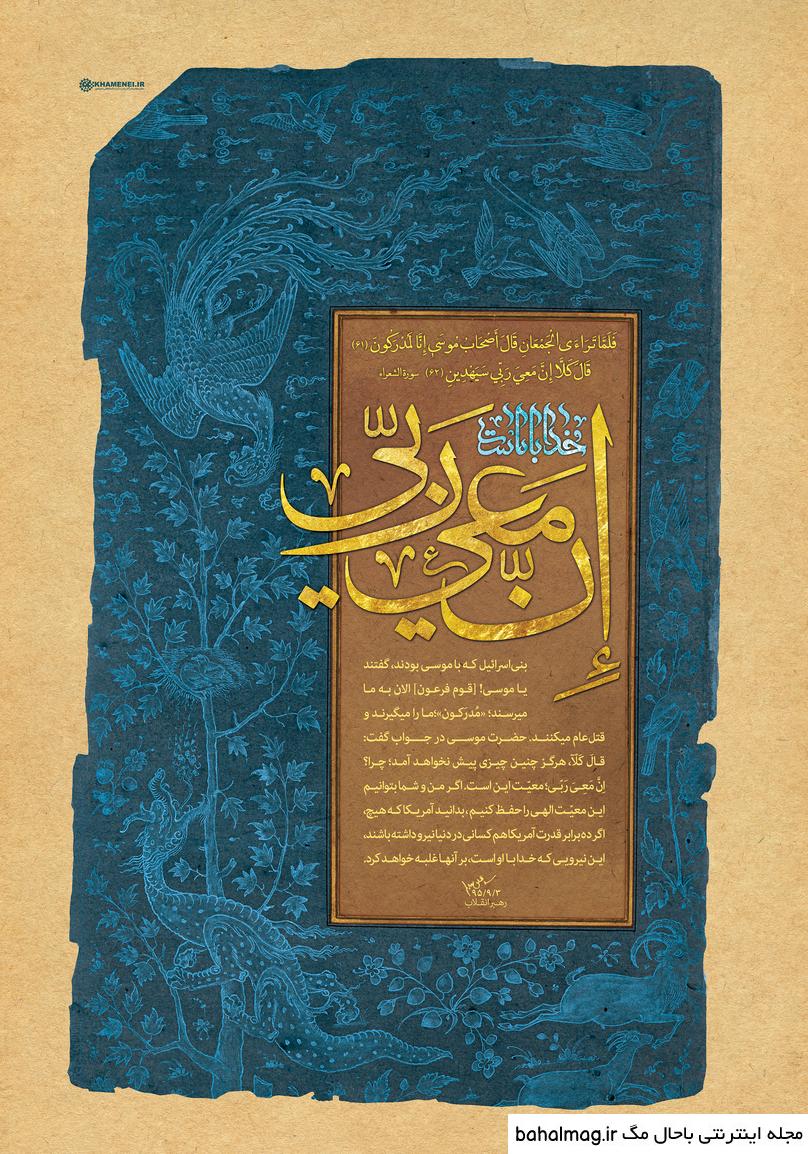 KHAMENEI.IR
فَلَمَّا تَرَاءَى الْجَمْعَانِ قَالَ أَصْحَابُ مُوسَى إِنَّا لَمُدْرَكُونَ (۶۱)
قَالَ كَلَّا إِنَّ مَعِيَ رَبِّي سَيَهْدِينِ (۶۲) سورة الشعراء
خدا با ماست
إِنَّ مَعِيَ رَبِّي
بنی‌اسرائیل که با موسی بودند، گفتند
یا موسی! [قوم فرعون] الان به ما
میرسند؛ «مُدرَکون»؛ ما را میگیرند و
قتل‌عام میکنند. حضرت موسی در جواب گفت:
قالَ کَلّا، هرگز چنین چیزی پیش نخواهد آمد؛ چرا؟
اِنَّ مَعِیَ رَبّی؛ معیّت این است. اگر من و شما بتوانیم
این معیّت الهی را حفظ کنیم، بدانید آمریکا که هیچ،
اگر ده برابر قدرت آمریکا هم کسانی در دنیا نیرو داشته باشند،
این نیرویی که خدا با او است، بر آنها غلبه خواهد کرد.
۹۵/۹/۳
رهبر انقلاب
مجله اینترنتی باحال مگ bahalmag.ir